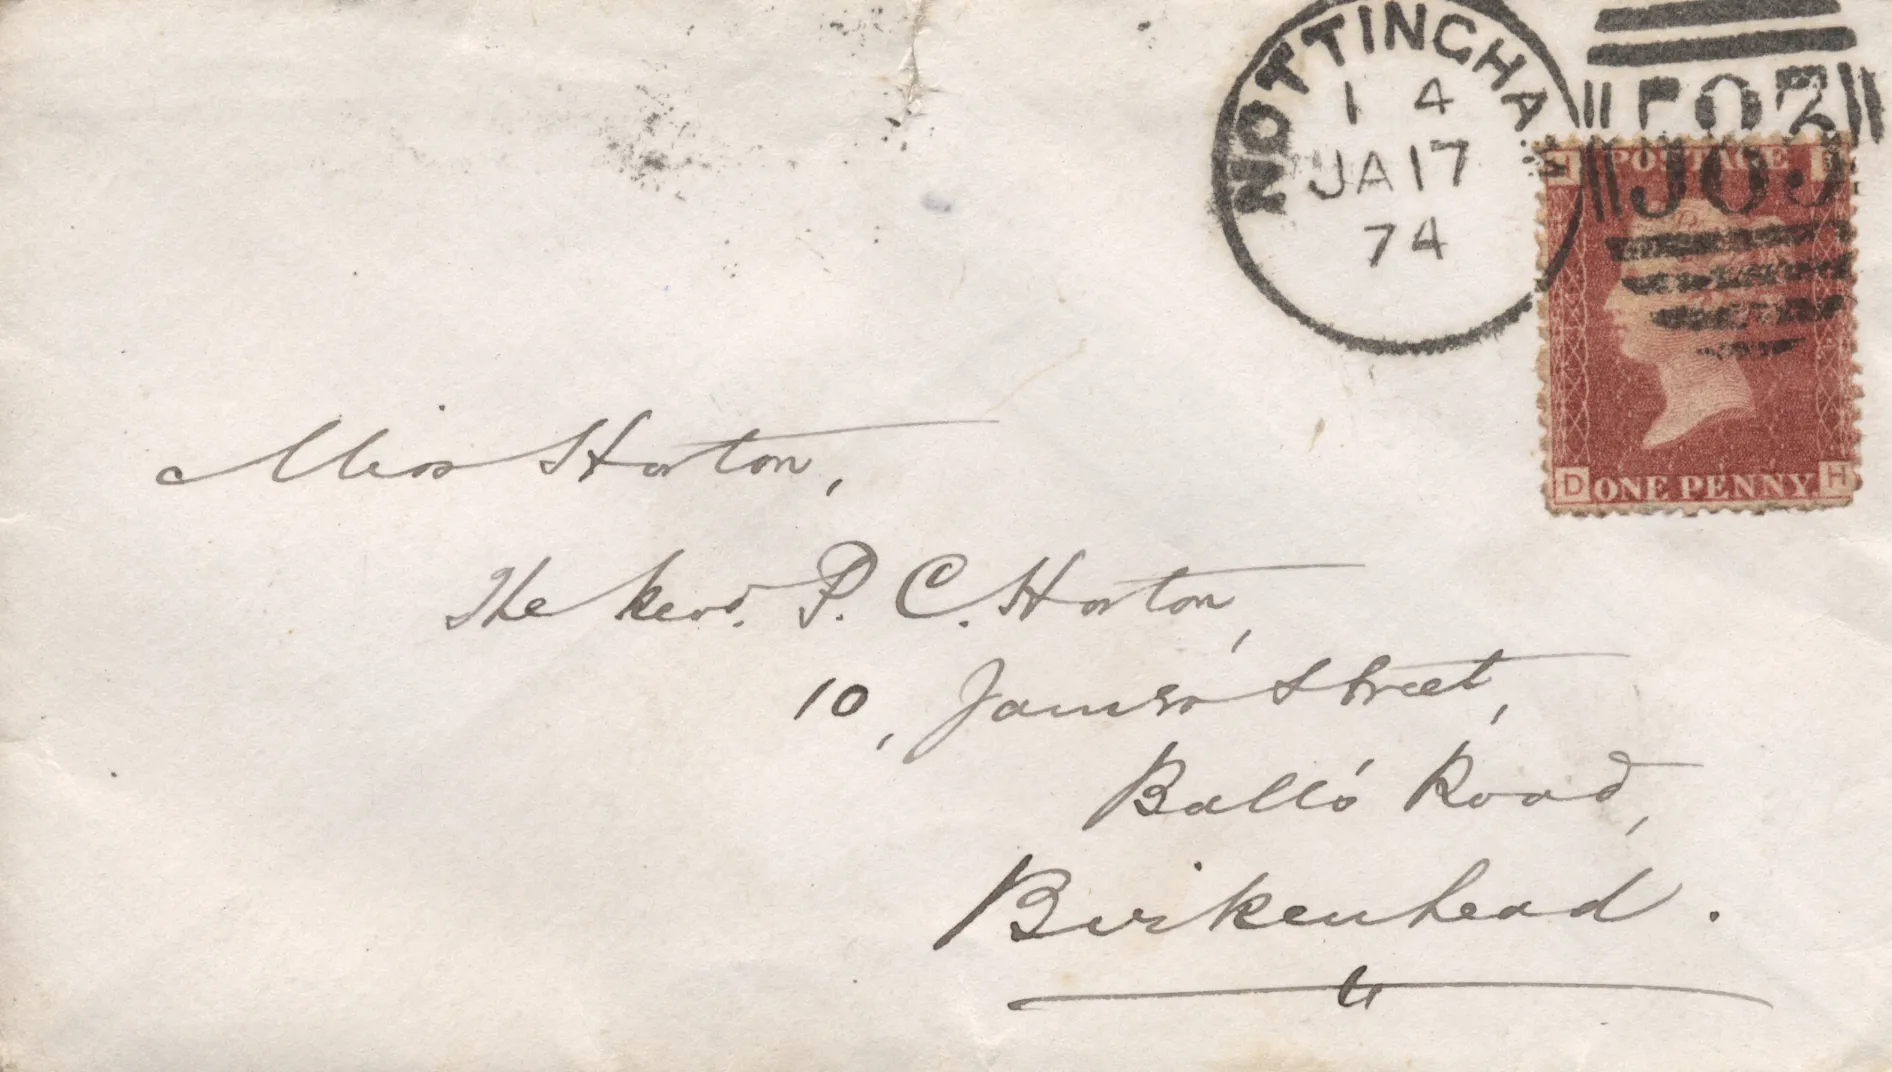 NOTTINGHAM
1 4
JA 17
74
POSTAGE
D ONE PENNY H
Miss Horton,
The Revd. P. C. Horton,
10, James Street,
Ball's Road,
Birkenhead.